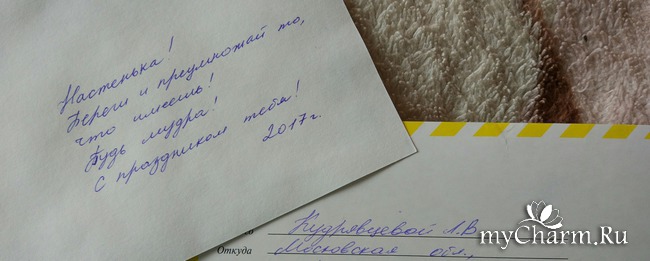 Настенька!
Береги и преумножай то,
что имеешь!
Будь мудра!
С праздником тебя!
2017г.
Кудрявцевой Л.В
Откуда Московская обл.,
myCharm.Ru